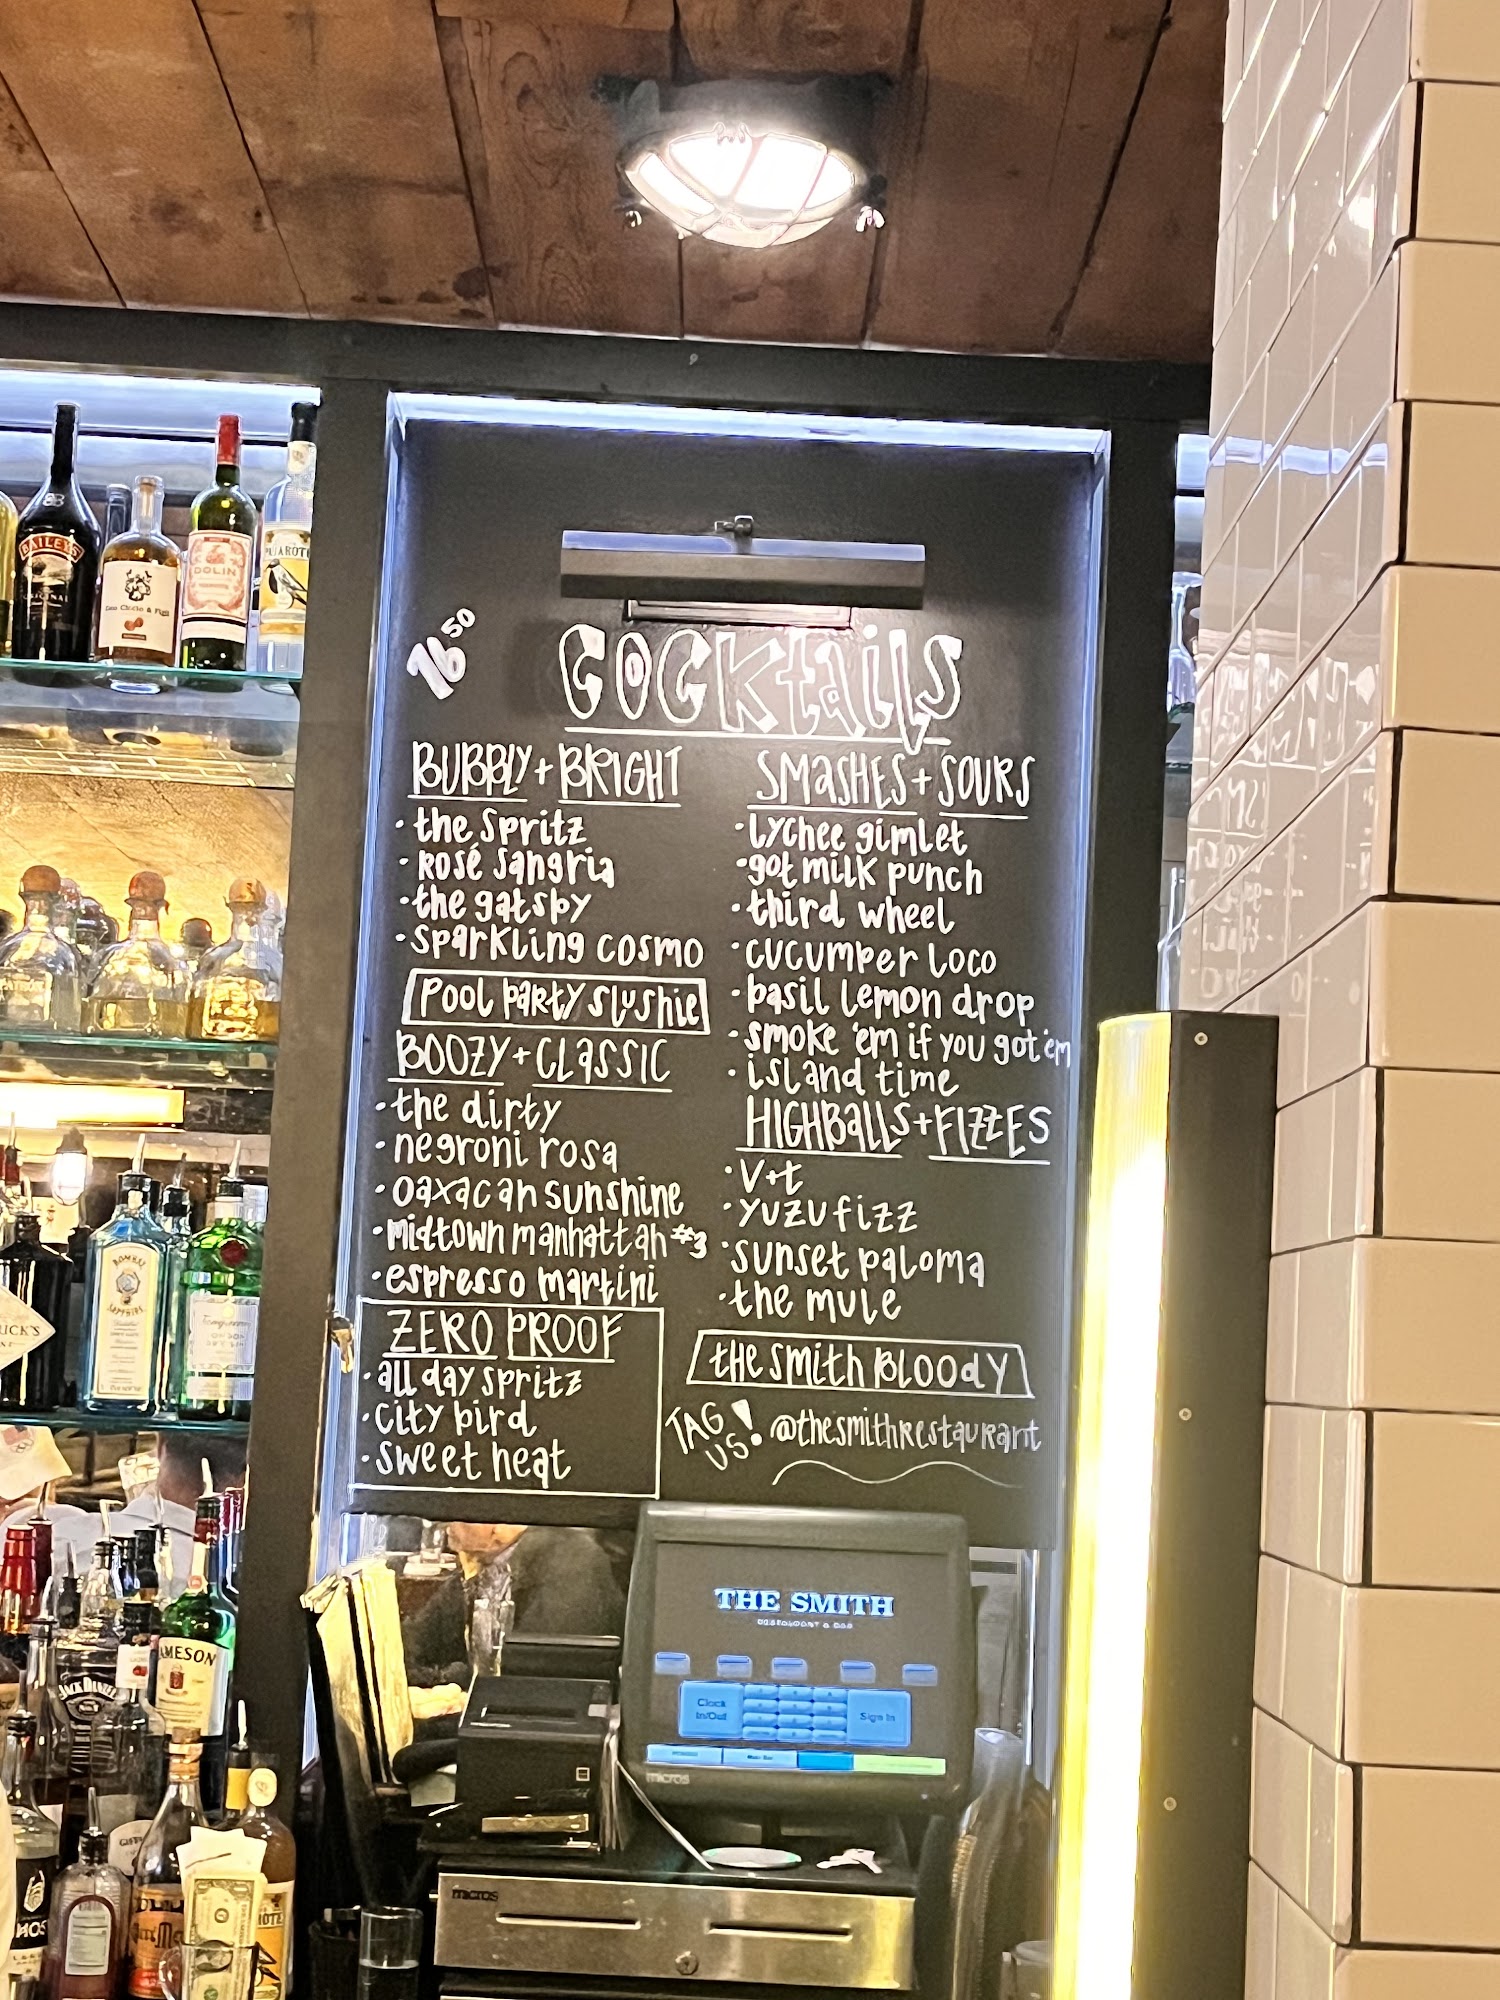 16⁵⁰
COCKtails
BUBBLY + BRIGHT
• the spritz
• Rosé sangria
• the gatsby
• sparkling cosmo
Pool party slushie
BOOZY + CLASSIC
• the dirty
• negroni rosa
• oaxacan sunshine
• midtown manhattan #3
• espresso martini
ZERO PROOF
• all day spritz
• city bird
• sweet heat
SMASHES + SOURS
• lychee gimlet
• got milk punch
• third wheel
• cucumber loco
• basil lemon drop
• smoke 'em if you got 'em
• island time
HIGHBALLS + FIZZES
• V+t
• yuzu fizz
• sunset paloma
• the mule
the smith Bloody
TAG US! @thesmithrestaurant
BAILEYS
ORIGINAL
DOLIN
PATRÓN
BOMBAY
SAPPHIRE
JAMESON
JACK DANIEL'S
THE SMITH
RESTAURANT & BAR
Clock
In/Out
Sign In
micros
micros